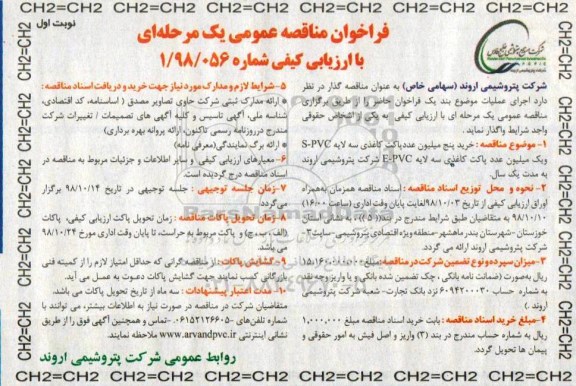 نوبت اول
فراخوان مناقصه عمومی یک مرحله‌ای
با ارزیابی کیفی شماره ۱/۹۸/۰۵۶
شرکت پتروشیمی اروند (سهامی خاص) به عنوان مناقصه گذار در نظر
دارد اجرای عملیات موضوع بند یک فراخوان حاضر را از طریق برگزاری
مناقصه عمومی یک مرحله ای با ارزیابی کیفی به یکی از اشخاص حقوقی
واجد شرایط واگذار نماید.
۱- موضوع مناقصه : خرید پنج میلیون عدد پاکت کاغذی سه لایه S-PVC
ویک میلیون عدد پاکت کاغذی سه لایه E-PVC شرکت پتروشیمی اروند
به مدت یک سال.
۲- نحوه و محل توزیع اسناد مناقصه : اسناد مناقصه همزمان به‌همراه
اوراق ارزیابی کیفی از تاریخ ۹۸/۱۰/۰۳ لغایت پایان وقت اداری (ساعت ۱۶:۰۰)
۹۸/۱۰/۱۰ به متقاضیان طبق شرایط مندرج در بند (۵) در محل
خوزستان-شهرستان بندرماهشهر-منطقه ویژه اقتصادی پتروشیمی-سایت ۳-
شرکت پتروشیمی اروند ارائه می گردد.
۳- میزان سپرده و نوع تضمین شرکت در مناقصه: مبلغ
ریال به‌صورت (ضمانت نامه بانکی ، چک تضمین شده بانکی) و یا واریز وجه نقد
به شماره حساب ۶۰۹۴۲۰۰۰۳۰ نزد بانک تجارت- شعبه شرکت پتروشیمی
اروند .)
۴- مبلغ خرید اسناد مناقصه : بابت خرید اسناد مناقصه مبلغ ۱,۰۰۰,۰۰۰
ریال به شماره حساب مندرج در بند (۳) واریز و اصل فیش به امور حقوقی و
پیمان ها تحویل گردد.
۵- شرایط لازم و مدارک مورد نیاز جهت خرید و دریافت اسناد مناقصه :
ارائه مدارک ثبتی شرکت حاوی تصاویر مصدق ( اساسنامه، کد اقتصادی،
شناسه ملی، آگهی تاسیس و کلیه آگهی های تصمیمات / تغییرات شرکت
مندرج در روزنامه رسمی تاکنون، ارائه پروانه بهره برداری)
ارائه برگ نمایندگی(معرفی نامه)
۶- معیارهای ارزیابی کیفی و سایر اطلاعات و جزئیات مربوط به مناقصه در
اسناد مناقصه درج گردیده است.
۷- زمان جلسه توجیهی : جلسه توجیهی در تاریخ ۹۸/۱۰/۱۴ برگزار
می‌گردد.
۸- زمان تحویل پاکات مناقصه : زمان تحویل پاکت ارزیابی کیفی، پاکات
(الف، ب، ج) و پاکت مربوط به حراست، تا پایان وقت اداری مورخ ۹۸/۱۰/۲۴
می باشد.
۹- گشایش پاکات : از مناقصه‌گرانی که حداقل امتیاز لازم را از کمیته فنی
بازرگانی کسب نمایند جهت گشایش پاکات دعوت به عمل می آید.
۱۰- مدت اعتبار پیشنهادات : سه ماه از تاریخ تحویل پاکات می باشد.
متقاضیان شرکت در مناقصه در صورت نیاز به اطلاعات بیشتر، می توانند با
شماره تلفن‌های ۰۶۱۵۲۱۲۶۶۰۵- تماس و همچنین آگهی فوق را از طریق
نشانی اینترنتی www.arvandpvc.ir ملاحظه نمایند.
روابط عمومی شرکت پتروشیمی اروند
CH2=CH2 CH2=CH2 CH2=CH2 CH2=CH2 CH2=CH2 CH2=CH2 CH2=CH2